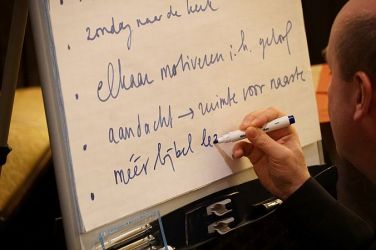 • zondag naar de kerk
• elkaar motiveren i.h. geloof
• aandacht → ruimte voor naaste
• méér bijbel lez